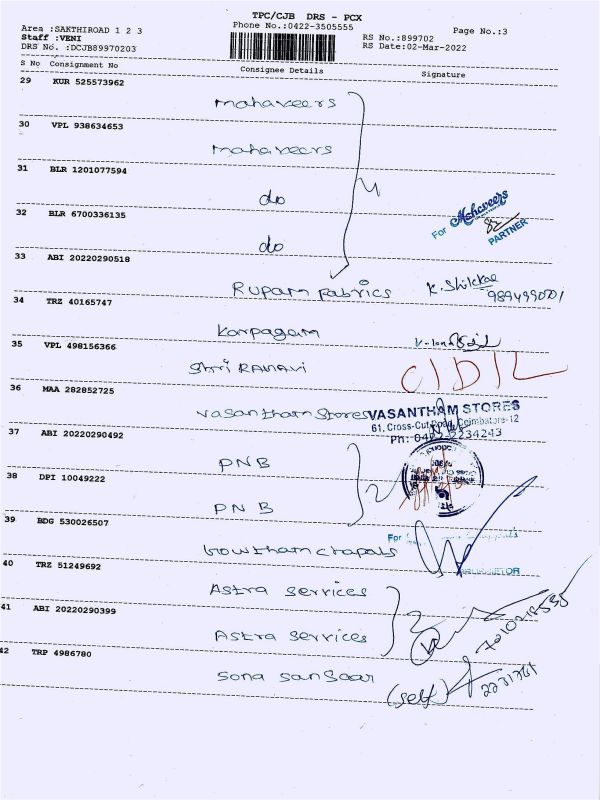 TPC/CJB DRS - PCX
Area :SAKTHIROAD 1 2 3 Phone No.:0422-3505555 Page No.:3
Staff :VENI RS No.:899702
DRS No. :DCJB89970203 RS Date:02-Mar-2022
S No Consignment No Consignee Details Signature
29 KUR 525573962
mahaveers
30 VPL 938634653
mahaveers
31 BLR 1201077594
do
32 BLR 6700336135
do
4
For Mahaveers
PARTNER
33 ABI 20220290518
Rupam fabrics K.
34 TRZ 40165747
Karpagam
35 VPL 498156366
Shri
36 MAA 282852725
vasantham Stores VASANTHAM STORES
61, Cross-Cut Road, Coimbatore-12
37 ABI 20220290492
PNB
38 DPI 10049222
PNB
2
39 BDG 530026507
For
Gowtham chapals
40 TRZ 51249692
Astra services
41 ABI 20220290399
Astra services
2
42 TRP 4986780
Sona
(self)